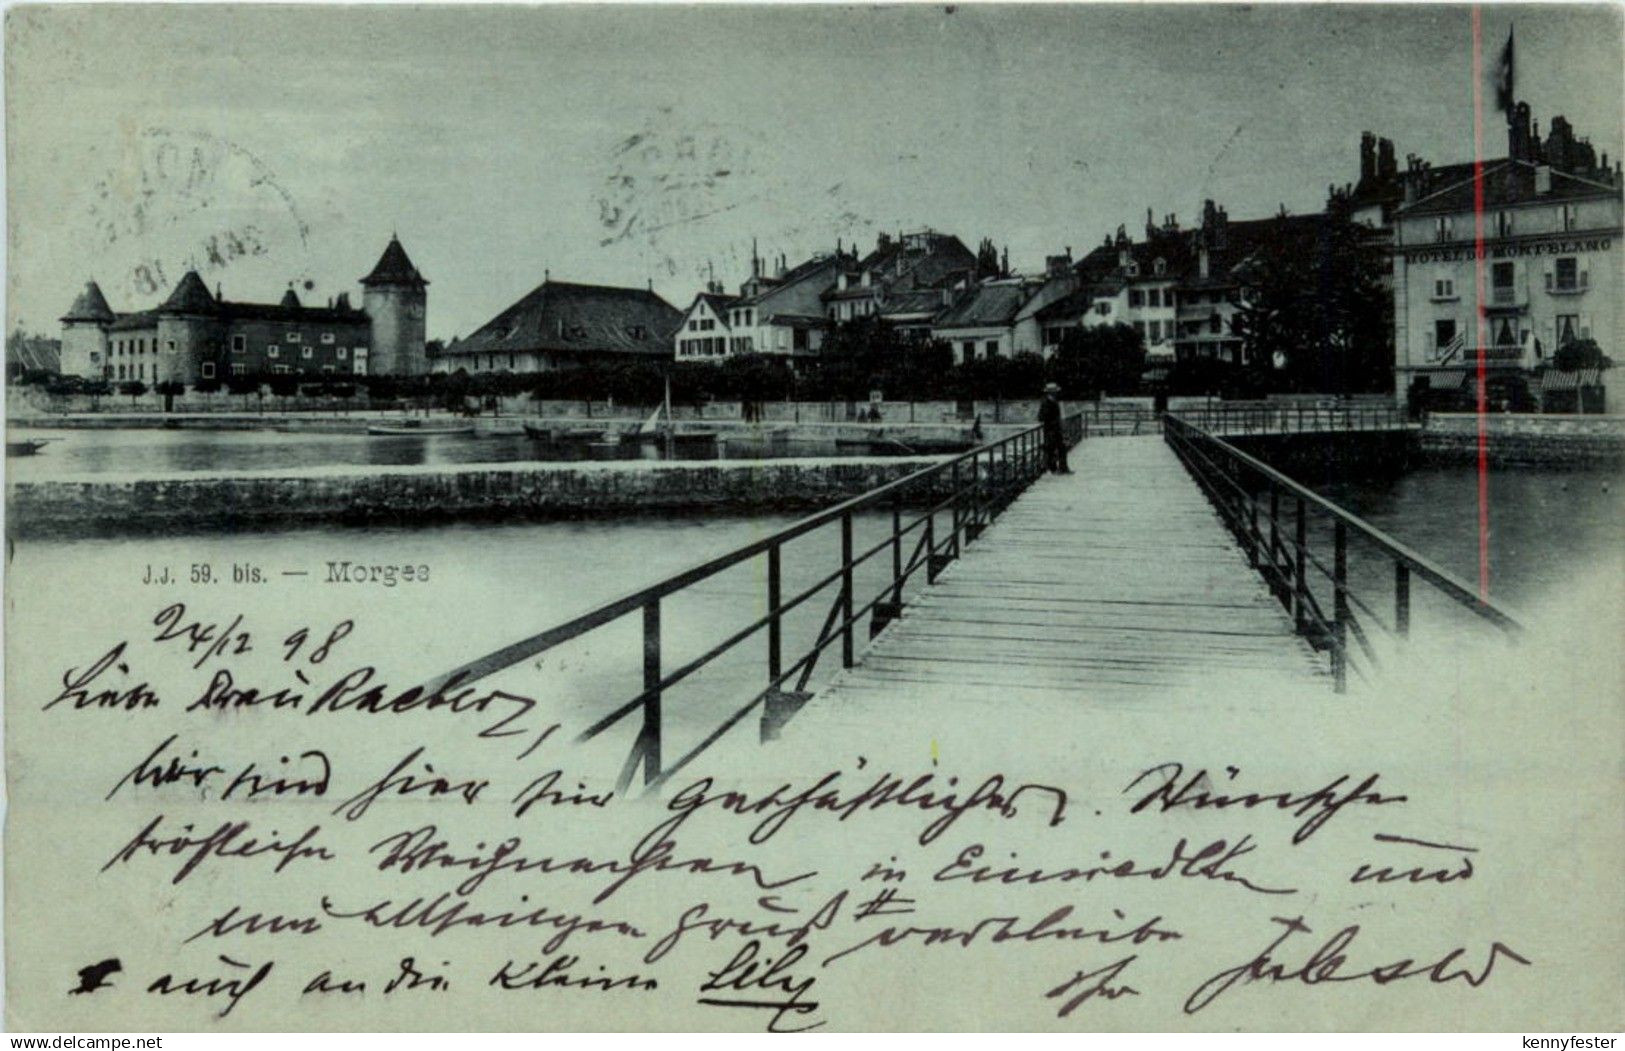 HOTEL DU MONT-BLANC
J.J. 59. bis. — Morges
24/12 98
Liebe Frau Kaelber,
Wir sind hier für Geschäftliches. Wünsche
fröhliche Weihnachten in Einsiedeln und
mit allseitigen Gruß # verbleibe
# auch an die kleine Lily Ihr
www.delcampe.net kennyfester